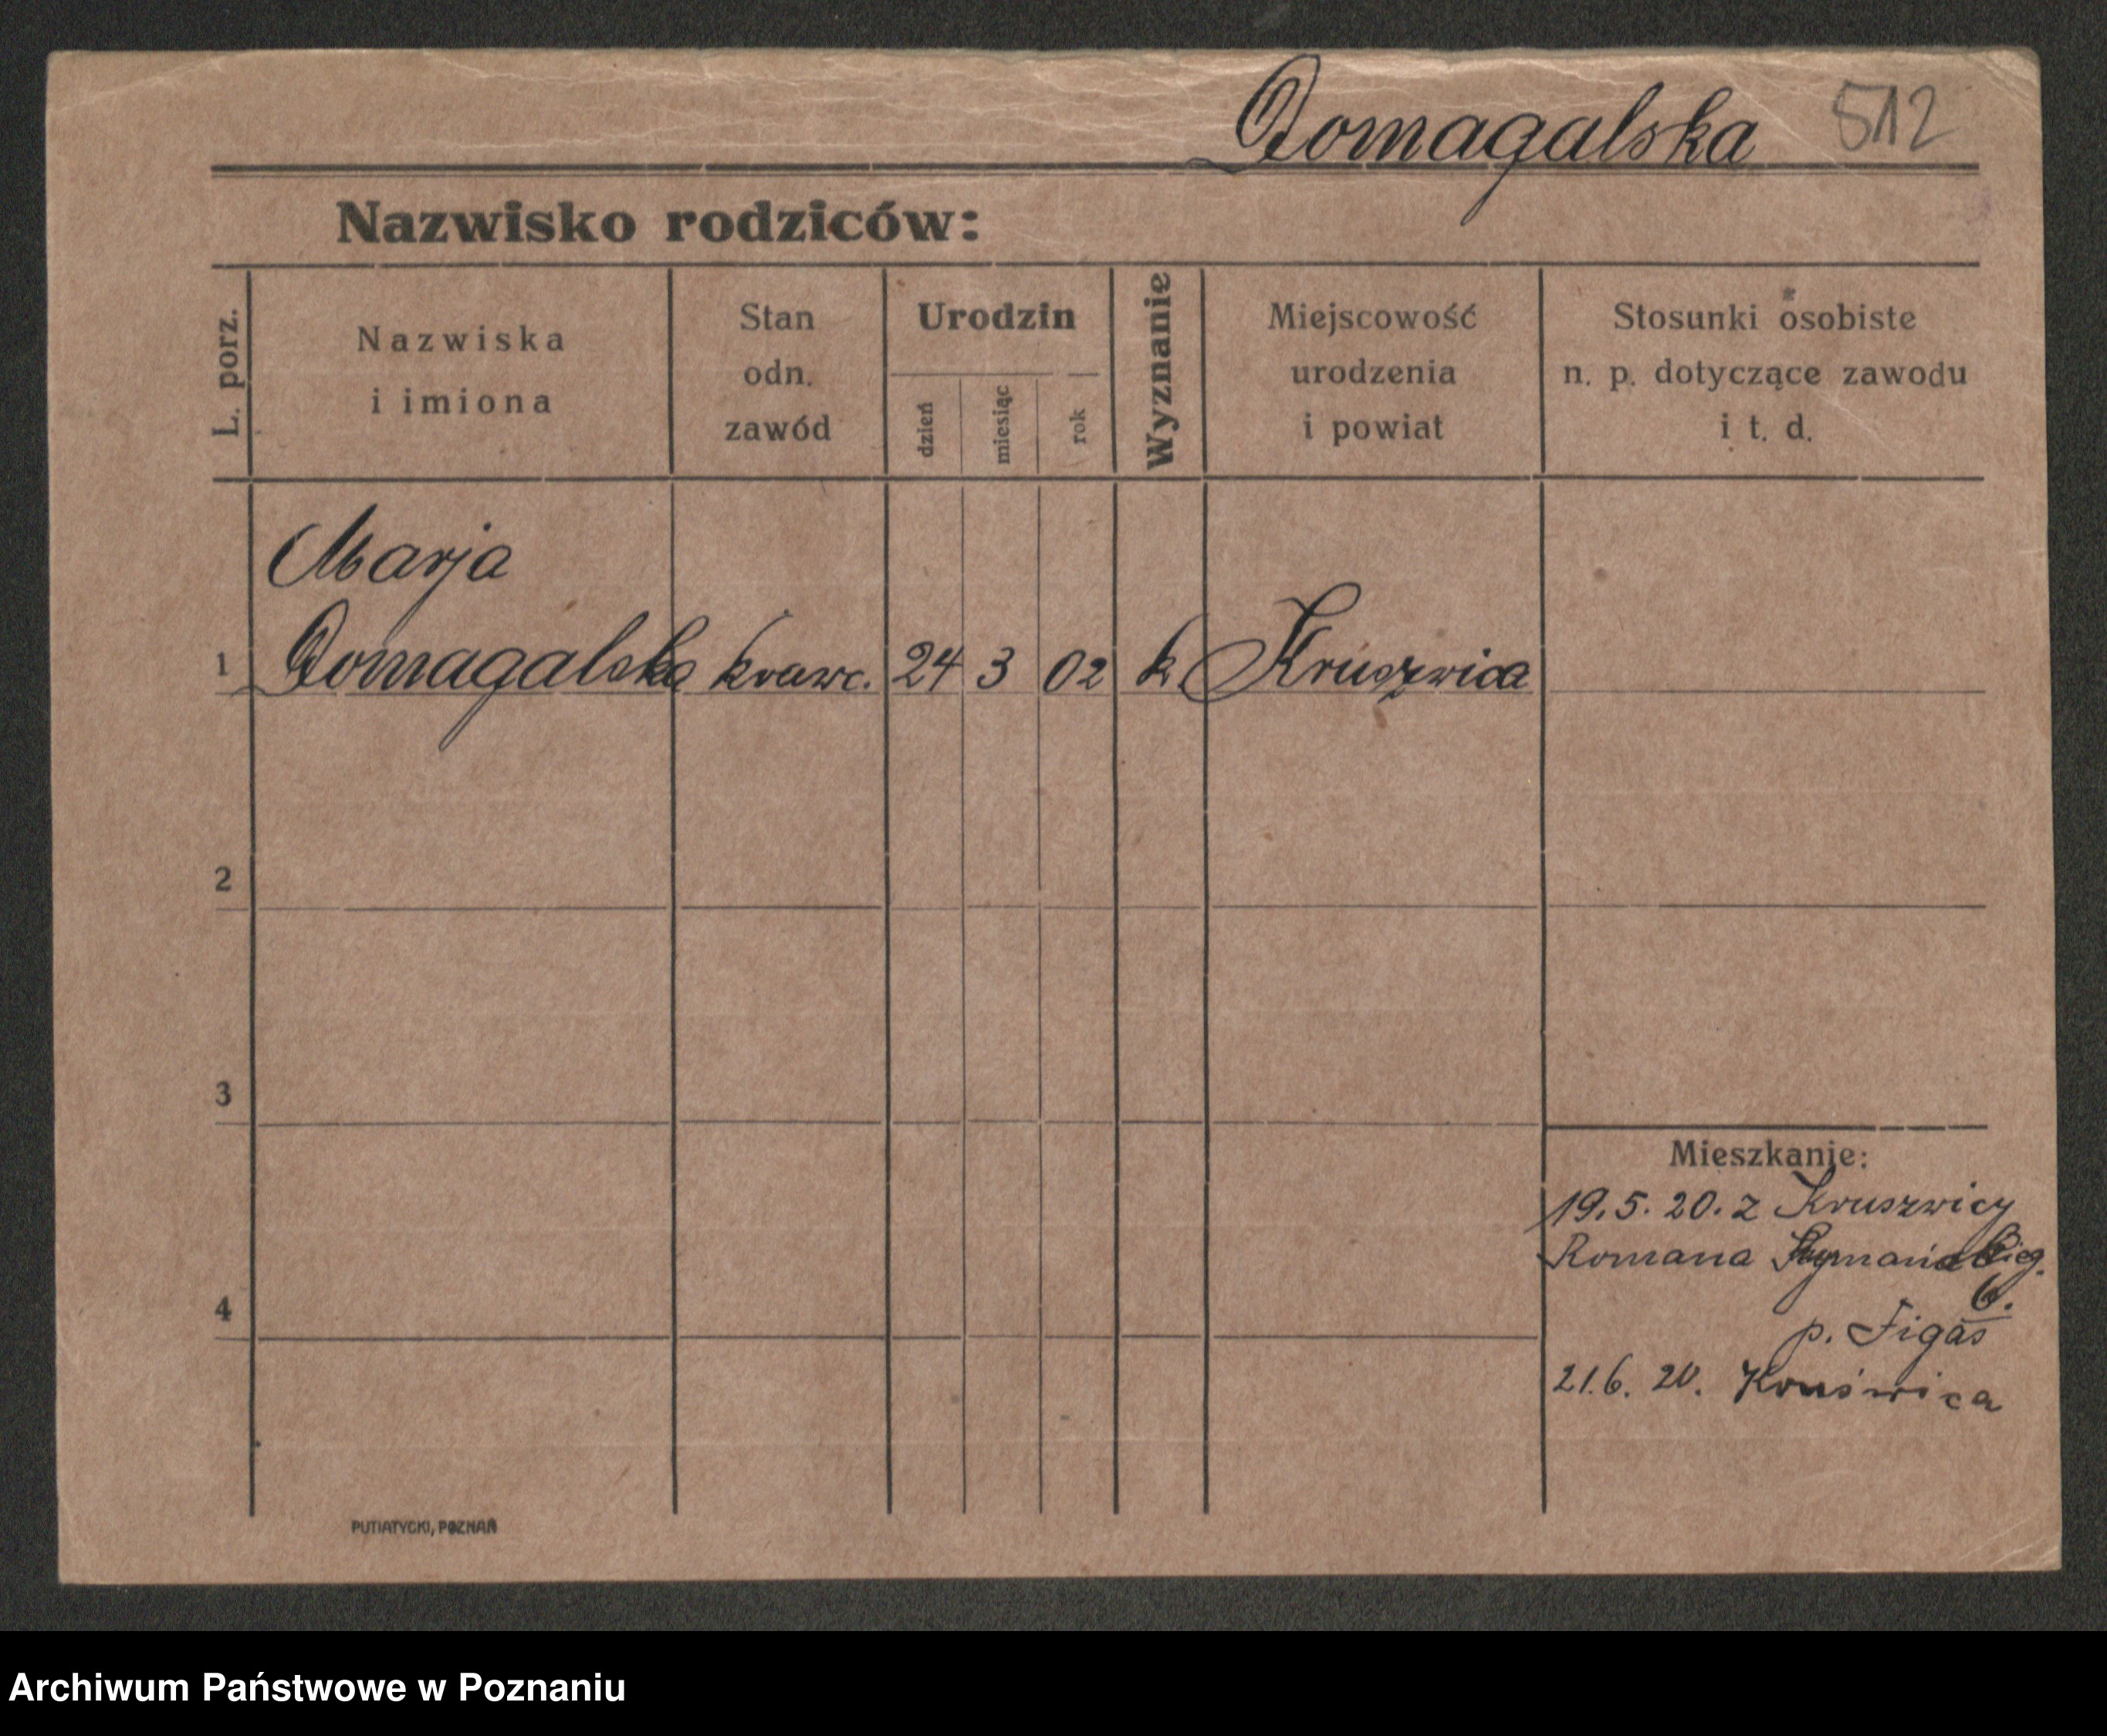 Domagalska 512
Nazwisko rodziców:
L. porz.
Nazwiska
i imiona
Stan
odn.
zawód
Urodzin
dzień
miesiąc
rok
Wyznanie
Miejscowość
urodzenia
i powiat
Stosunki osobiste
n. p. dotyczące zawodu
i t. d.
Marja
1 Domagalska krawc. 24 3 02 k Kruszwica
2
3
Mieszkanie:
19.5.20. z Kruszwicy
Romana
6.
4
p. Figas
21.6.20. Kruświca
PUTIATYCKI, POZNAŃ
Archiwum Państwowe w Poznaniu